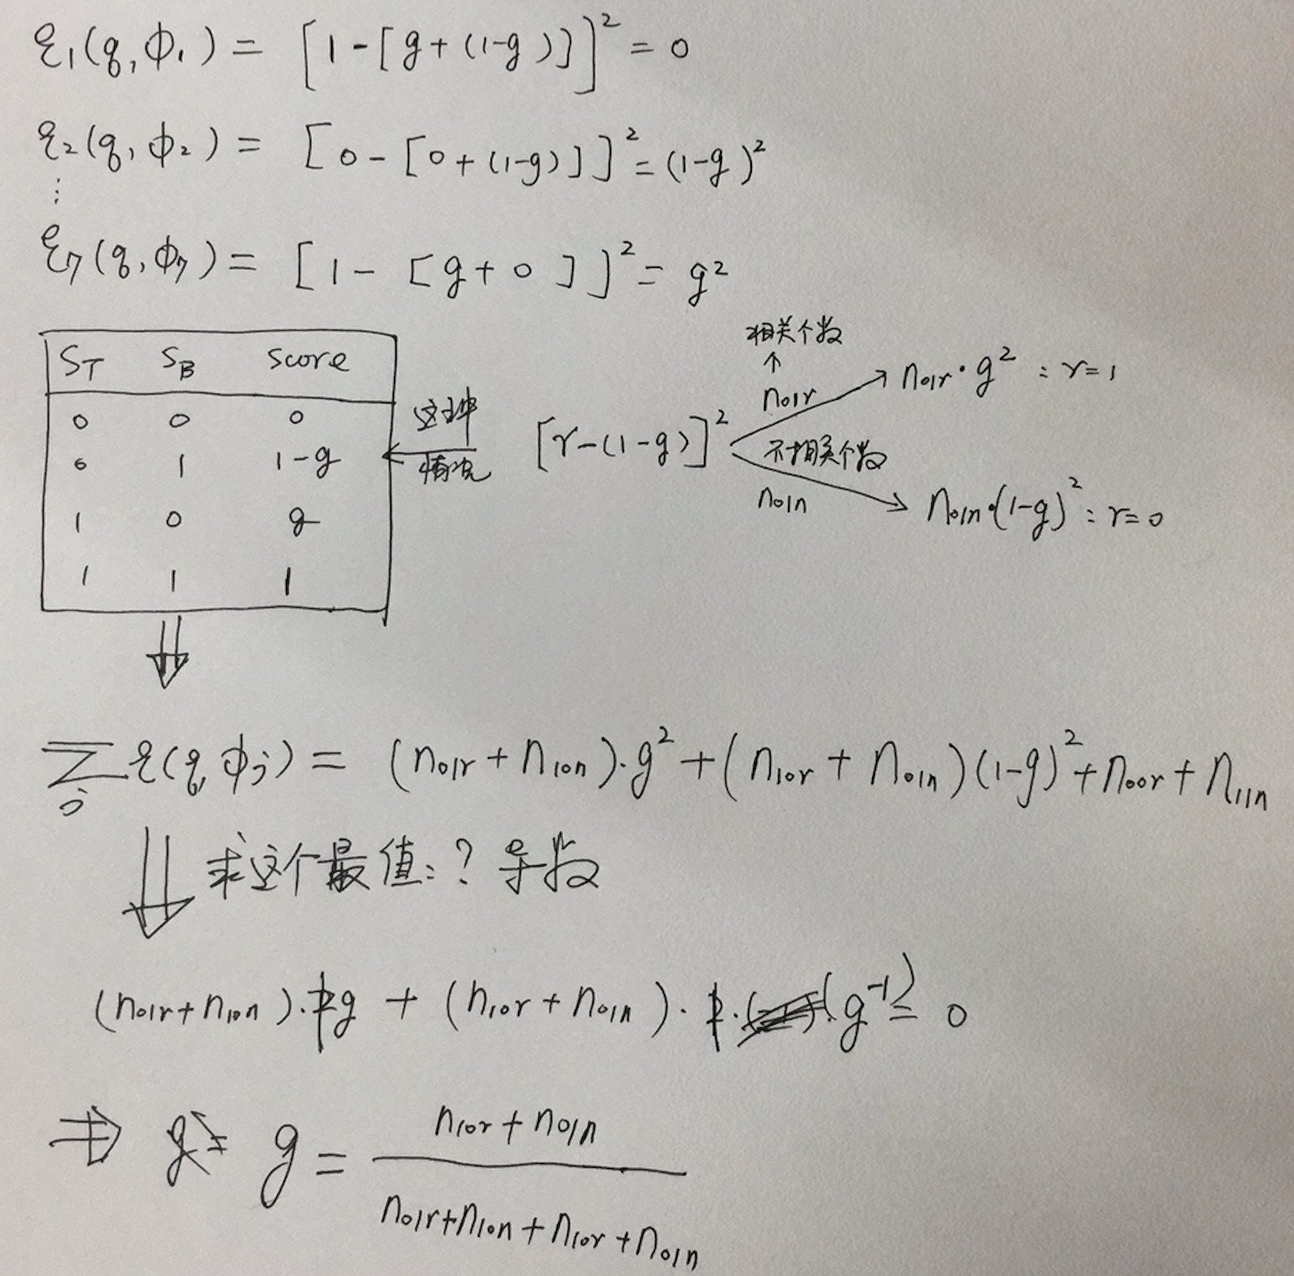 ε₁(q,ϕ₁) = [1-[g+(1-g)]]² = 0
ε₂(q,ϕ₂) = [0-[0+(1-g)]]² = (1-g)²
⋮
ε₇(q,ϕ₇) = [1-[g+0]]² = g²
S_T S_B score
0 0 0
0 1 1-g
1 0 g
1 1 1
这种
情况
[r-(1-g)]²
相关个数
↑
n₀₁r
n₀₁r·g² : r=1
不相关个数
n₀₁n
n₀₁n·(1-g)² : r=0
⇓
∑_j ε(q,ϕ_j) = (n₀₁r+n₁₀n)·g²+(n₁₀r+n₀₁n)(1-g)²+n₀₀r+n₁₁n
⇓ 求这个最值:? 导数
(n₀₁r+n₁₀n)·2g + (n₁₀r+n₀₁n)·2·(g-1) = 0
⇒ g = g = (n₁₀r+n₀₁n)/(n₀₁r+n₁₀n+n₁₀r+n₀₁n)